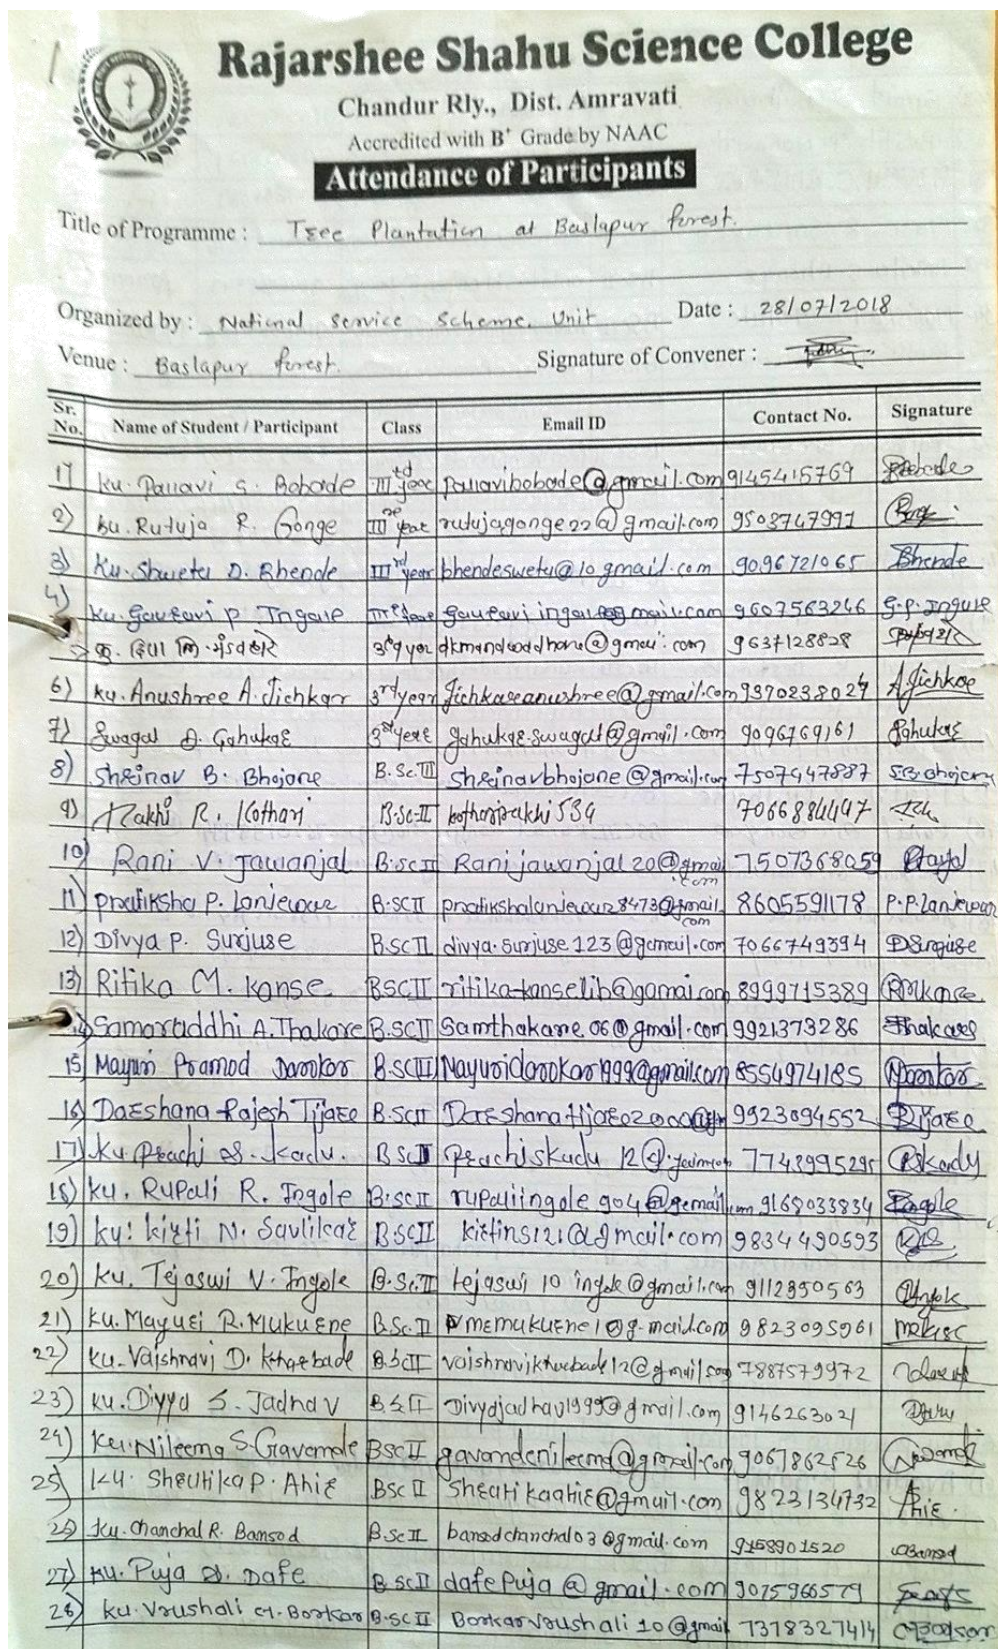 Rajarshee Shahu Science College
Chandur Rly., Dist. Amravati
Accredited with B+ Grade by NAAC
Attendance of Participants
Title of Programme : Tree Plantation at Baslapur forest.
Organized by : National Service Scheme Unit Date : 28/07/2018
Venue : Baslapur forest. Signature of Convener :
Sr. No. Name of Student / Participant Class Email ID Contact No. Signature
1) Ku. Pallavi S. Bobade IIItd year pallavibobade@gmail.com 9145415769 Bobade
2) Ku. Rutuja R. Gonge III year rutujagonge22@gmail.com 9503747997
3) Ku. Shweta D. Bhende IIIrd year bhendesweta@10gmail.com 9096721065 Bhende
4) Ku. Gauravi P. Ingale year 9607563246 G.P. Ingale
कु. 9637128828
6) Ku. Anushree A. Jichkar 3rd year Jichkaranushree@gmail.com 9370238024 A Jichkar
7) Swagat D. Gahukar 3rd year gahukar.swagat@gmail.com 9096769161 Gahukar
8) Shrinav B. Bhojane B.Sc.III shrinavbhojane@gmail.com 7507447887 S.B.Bhojane
9) Rakhi R. Kothari B.Sc-II kotharirakhi534 7066884447
10) Rani V. Jawanjal B.Sc II Ranijawanjal20@gmail.com 7507368059
11) Pratiksha P. Lanjewar B.Sc II pratikshalanjewar8473@gmail.com 8605591178 P.P.Lanjewar
12) Divya P. Surjuse B.Sc II divya.surjuse.123@gmail.com 7066749394 DSurjuse
13) Ritika M. Kanse BSC II 8999715389 RMKanse
Samaruddhi A. Thakare B.SC II Samthakare06@gmail.com 9921373286 Thakare
15) Mayuri Pramod Darokar B.SC III Mayuridarokar1999@gmail.com 8554974185
16) Darshana Rajesh Tijare B.Sc II 9923094552 Tijare
17) Ku. Prachi S. Kadu. B Sc II 7743995295 PSKadu
18) Ku. Rupali R. Ingole B.Sc II rupaliingole904@gemail.com 9168033834 Ingole
19) Ku. Kirti N. Savlikar B.Sc II kirtins121@gmail.com 9834490593
20) Ku. Tejaswi V. Ingole B.Sc.II tejaswi10ingole@gmail.com 9112850563
21) Ku. Mayuri R. Mukurne B.Sc.II 9823095961
22) Ku. Vaishnavi D. Kharbade B.Sc II 7887579972
23) Ku. Divya S. Jadhav Divyajadhav1999@gmail.com 9146263021
24) Ku. Nileema S. Gavande BSC II 9067862526
25) Ku. Shrutika P. Ahir BSc II Shrutikaahir@gmail.com 9823134732 Ahir.
Ku. Chanchal R. Bansod B.Sc II bansodchanchal03@gmail.com 9158901520 Bansod
27) Ku. Puja S. Dafe B Sc II dafepuja@gmail.com 9075966579
28) Ku. Vrushali Borkar B.SC II Borkarvrushali10@gmail 7378327414